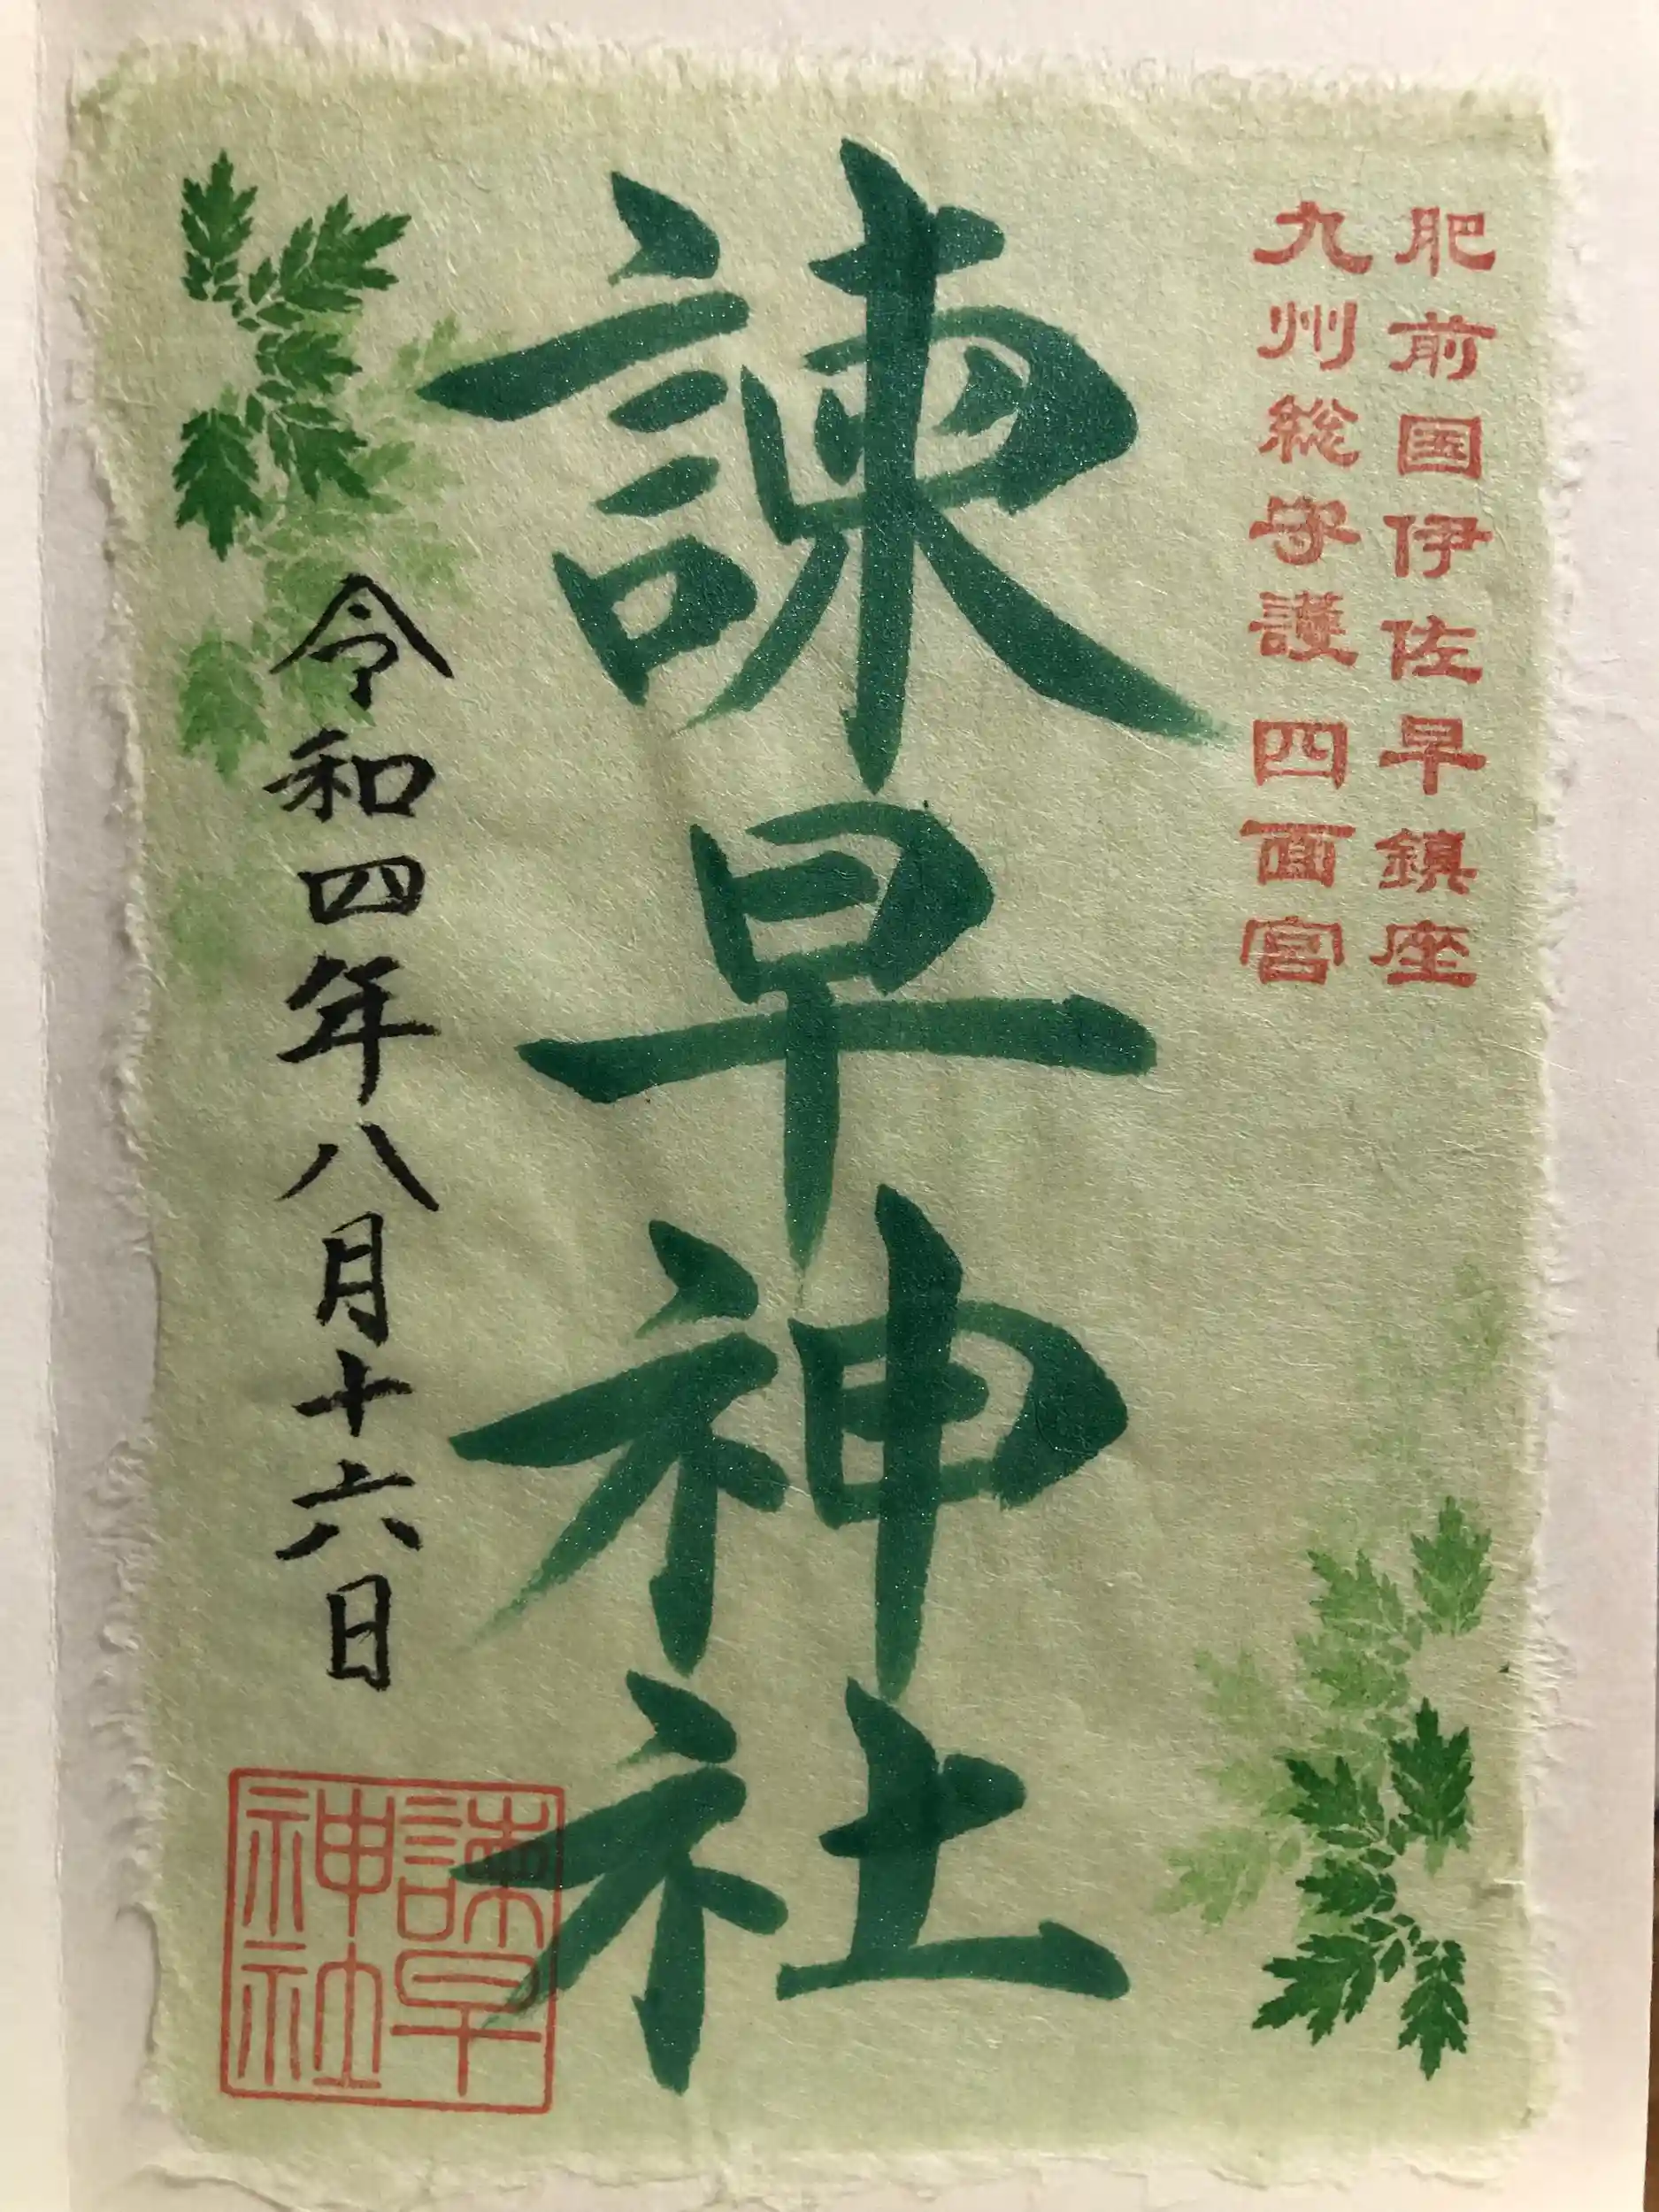 肥前国伊佐早鎮座
九州総守護四面宮
諫早神社
令和四年八月十六日
諫早
神社